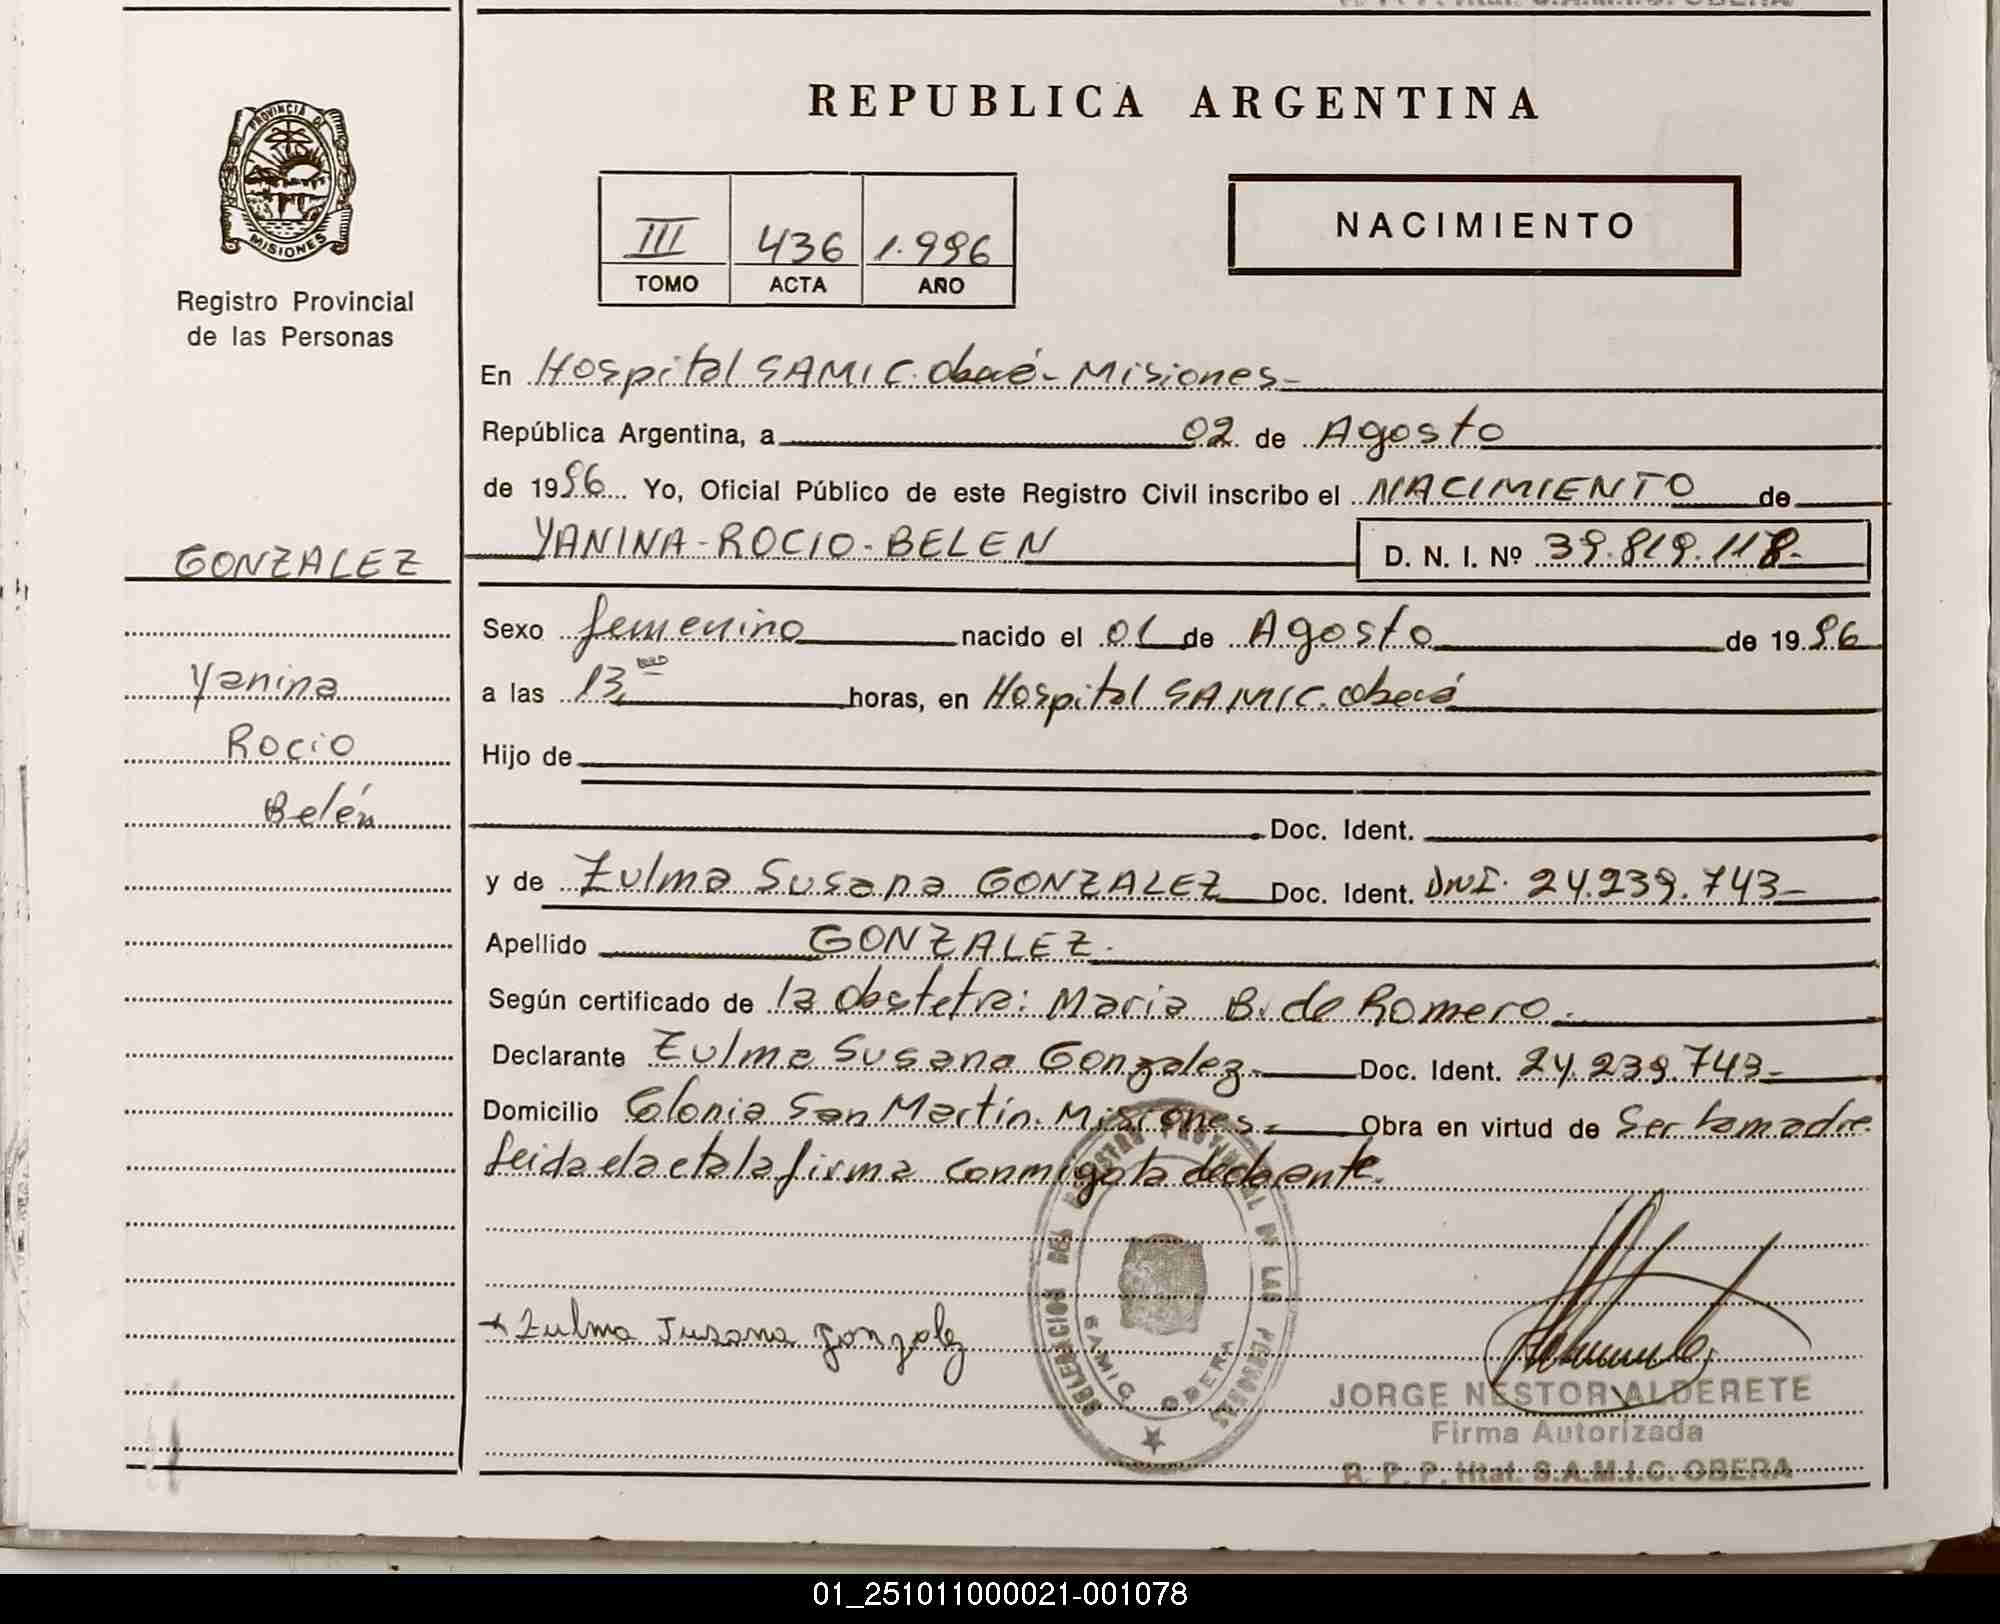 REPUBLICA ARGENTINA
PROVINCIA DE
MISIONES
Registro Provincial
de las Personas
III 436 1.996
TOMO ACTA AÑO
NACIMIENTO
En Hospital SAMIC. Oberá - Misiones -
República Argentina, a 02 de Agosto
de 1996 Yo, Oficial Público de este Registro Civil inscribo el NACIMIENTO de
GONZALEZ
YANINA - ROCIO - BELEN D. N. I. Nº 39.819.118-
Sexo femenino nacido el 01 de Agosto de 1996
Yanina
a las 13, horas, en Hospital SAMIC. Oberá
Rocio
Hijo de
Belén
Doc. Ident.
y de Zulma Susana GONZALEZ Doc. Ident. DNI. 24.239.743-
Apellido GONZALEZ.
Según certificado de la obstetra: Maria B. de Romero.
Declarante Zulma Susana Gonzalez Doc. Ident. 24.239.743-
Domicilio Colonia San Martín. Misiones - Obra en virtud de Ser la madre.
leida el acta la firma conmigo la declarante.
DELEGACION DEL REGISTRO PROVINCIAL DE LAS PERSONAS
SAMIC OBERA
Zulma Susana gonzalez
JORGE NESTOR ALDERETE
Firma Autorizada
R. P. P. Htal. S.A.M.I.C. OBERA
01_251011000021-001078